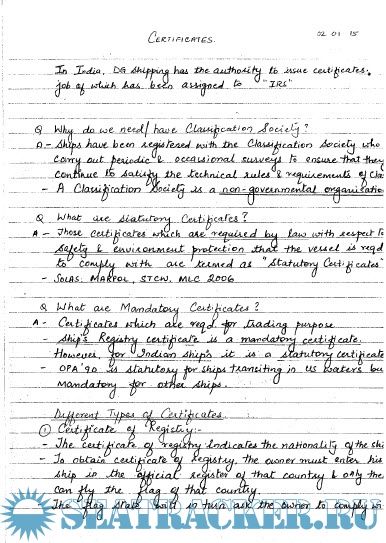 02 01 15
CERTIFICATES.
In India, DG Shipping has the authority to issue certificates.
job of which has been assigned to "IRS"
Q Why do we need/have Classification Society?
A- Ships have been registered with the Classification Society who
carry out periodic & occasional surveys to ensure that they
continue to satisfy the technical rules & requirements of Cla
- A Classification Society is a non-governmental organisation
Q What are Statutory Certificates?
A - Those certificates which are required by law with respect to
Safety & environment protection that the vessel is reqd
to comply with are termed as "Statutory Certificates"
- SOLAS, MARPOL, STCW, MLC 2006
Q What are Mandatory Certificates?
A- Certificates which are reqd for trading purpose
- Ship's Registry certificate is a mandatory certificate.
However, for Indian ships it is a statutory certificate
- OPA'90 is statutory for ships transiting in US waters bu
Mandatory for other ships.
Different Types of Certificates
① Certificate of Registry:-
- The certificate of registry indicates the nationality of the shi
- To obtain certificate of Registry, the owner must enter his
ship in the official register of that country & only the
can fly the flag of that country.
- The flag state will in turn ask the owner to comply wi
SEATRACKER.RU